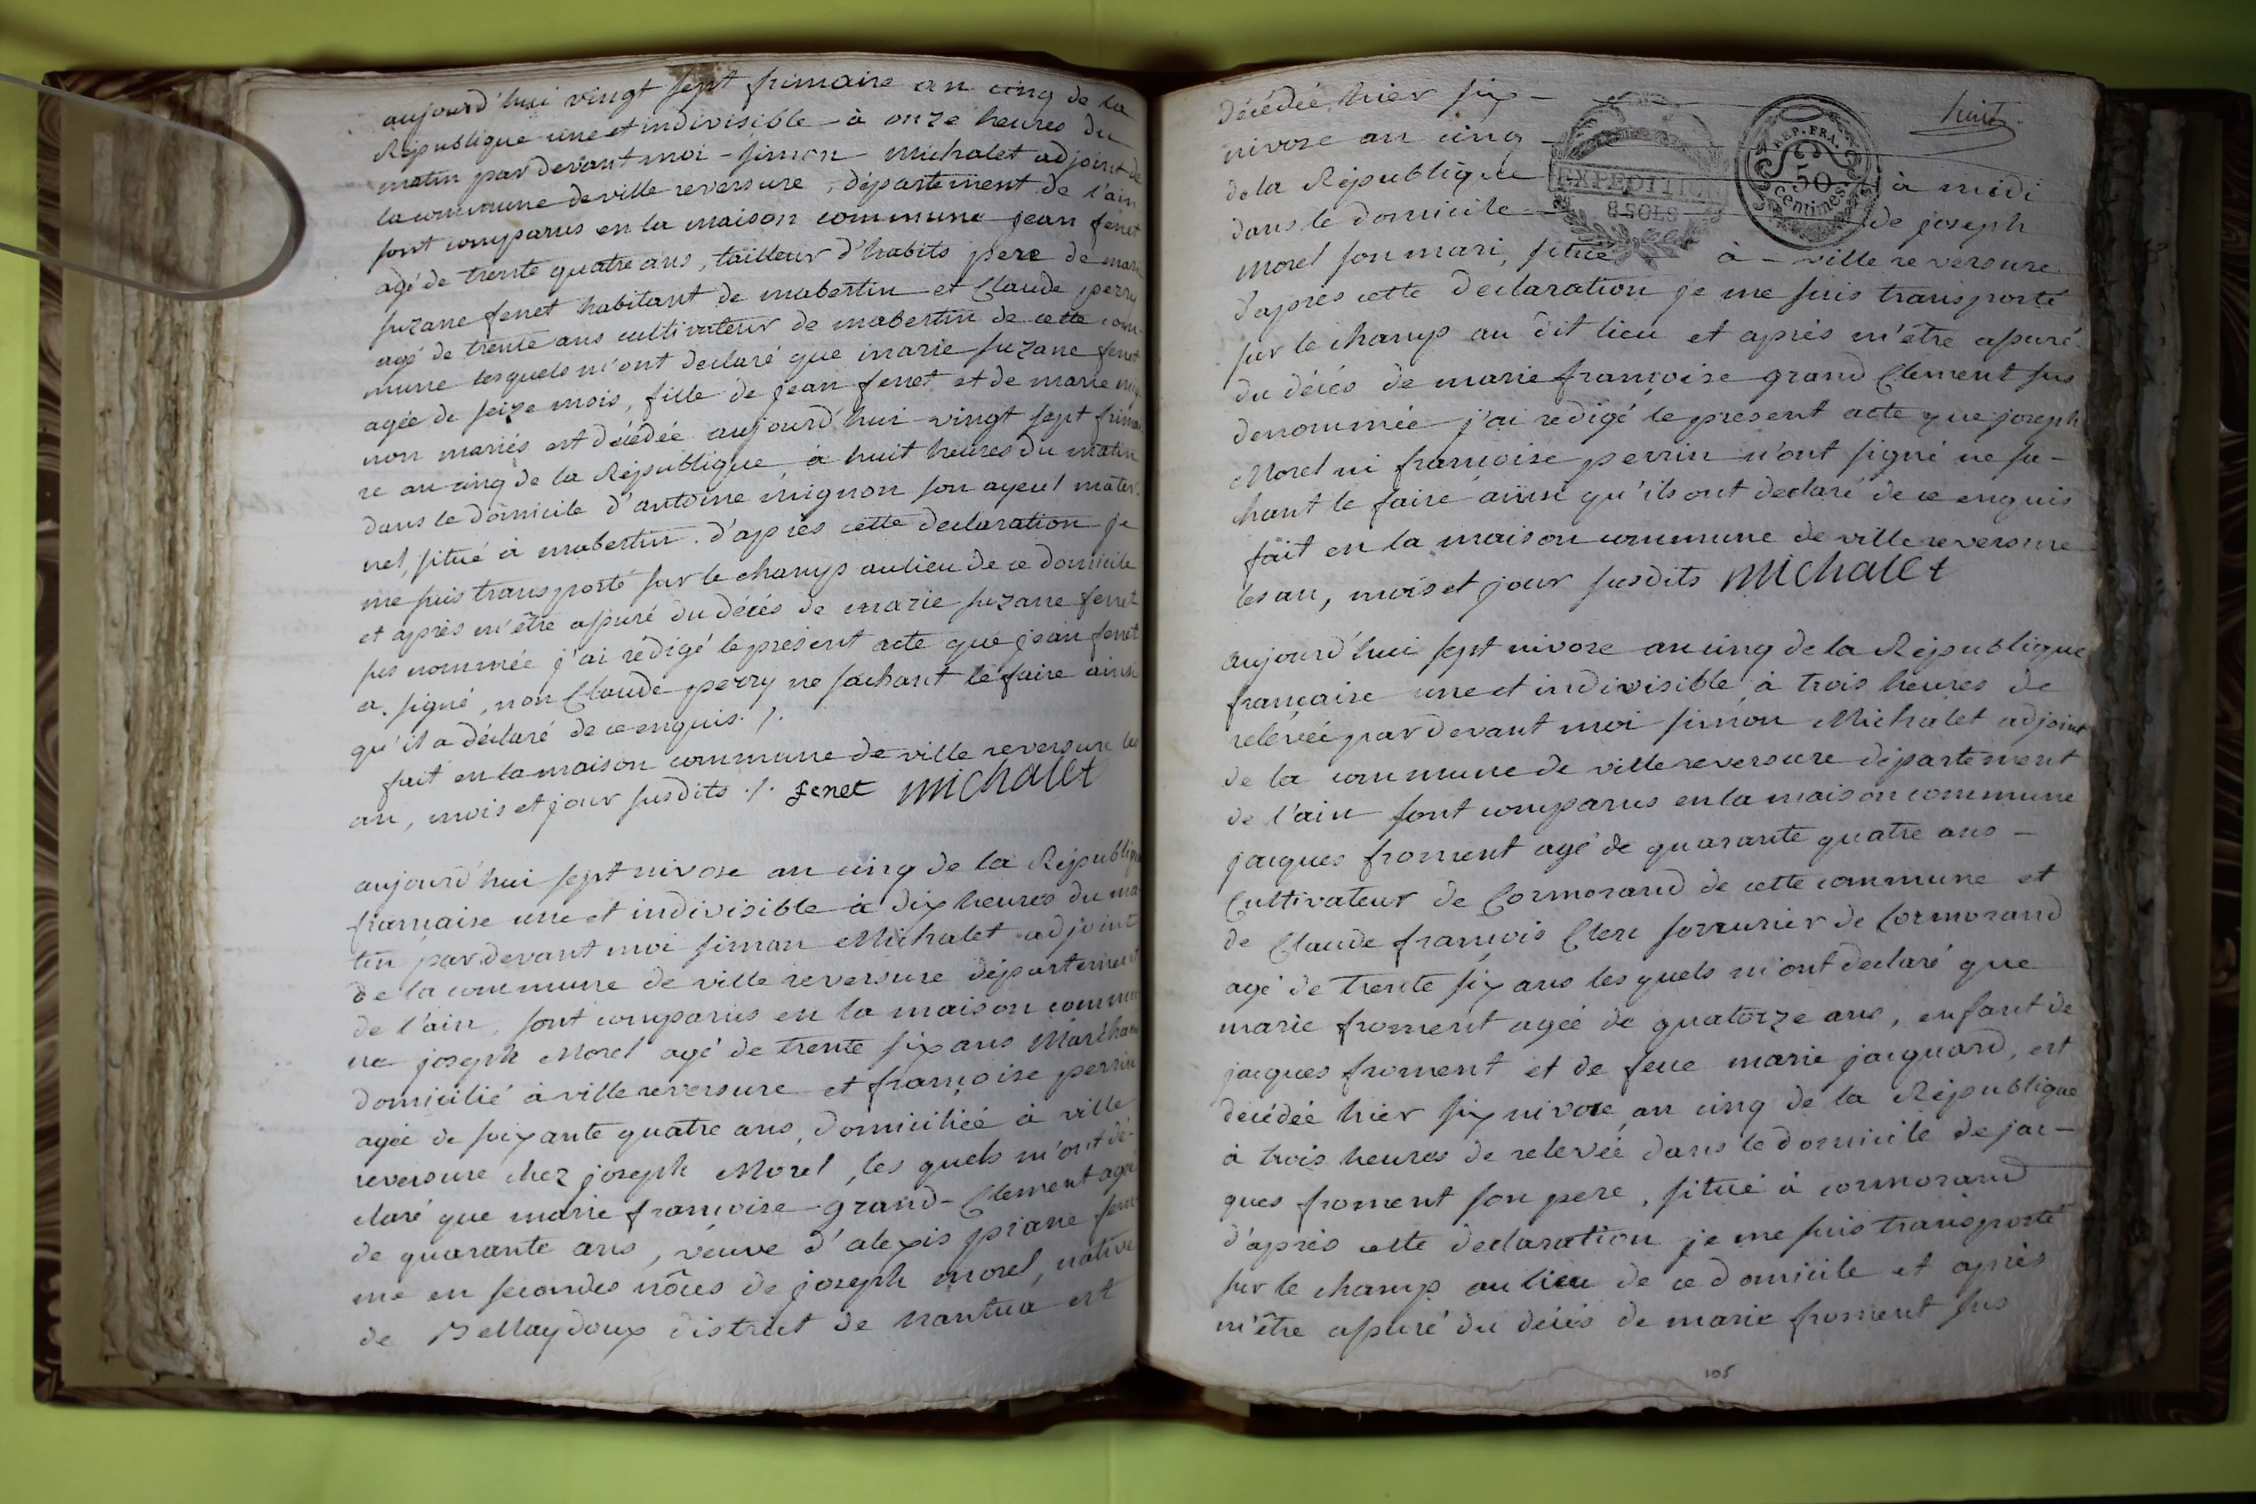 aujourd'hui vingt sept frimaire an cinq de la
République une et indivisible à onze heures du
matin par devant moi - simon Michalet adjoint de
la commune de ville reversure, département de l'ain
sont comparus en la maison commune jean fenet
agé de trente quatre ans, tailleur d'habits pere de marie
suzane fenet habitant de mabertin et Claude perry
agé de trente ans cultivateur de mabertin de cette com-
mune lesquels m'ont declaré que marie suzane fenet
agée de seize mois, fille de jean fenet et de marie
non mariés est décédée aujourd'hui vingt sept frimai
re an cinq de la République, à huit heures du matin
dans le domicile d'antoine mignon son ayeul mater-
nel, situé à mabertin. d'après cette declaration je
me suis transporté sur le champ au lieu de ce domicile
et après m'être assuré du décés de marie suzane fenet
sus nommée j'ai rédigé le présent acte que jean fenet
a signé, non Claude perry ne sachant le faire ainsi
qu'il a déclaré de ce enquis ./.
fait en la maison commune de ville reversure les
an, mois et jour susdits ./. fenet michalet
aujourd'hui sept nivose an cinq de la République
française une et indivisible à dix heures du ma
tin par devant moi simon Michalet adjoint
de la commune de ville reversure département
de l'ain, sont comparus en la maison commu
ne joseph Morel agé de trente six ans Maréchal
domicilié à ville reversure et françoise perrin
agée de soixante quatre ans, domiciliée à ville
reversure chez joseph Morel, les quels m'ont dé-
claré que marie françoise grand-Clement agée
de quarante ans, veuve d'alexis piane fem
me en secondes nôces de joseph morel, native
de Bellaydoux district de nantua est
huit
décédée hier six -
nivose an cinq -
de la République à midi
dans le domicile de joseph
morel son mari, situé à - ville reversure
d'après cette declaration je me suis transporté
sur le champ au dit lieu et après m'être assuré
du décés de marie françoise grand Clement sus
denommée j'ai rédigé le present acte que joseph
Morel ni françoise perrin n'ont signé ne sa-
chant le faire ainsi qu'ils ont declaré de ce enquis
fait en la maison commune de ville reversure
les an, mois et jour susdits michalet
EXPEDITION
8 SOLS
REP. FRA.
50
Centimes
aujourd'hui sept nivose an cinq de la République
française une et indivisible à trois heures de
relevée par devant moi simon Michalet adjoint
de la commune de ville reversure département
de l'ain sont comparus en la maison commune
jacques froment agé de quarante quatre ans -
Cultivateur de Cormorand de cette commune et
de Claude françois Clerc serrurier de Cormorand
agé de trente six ans les quels m'ont declaré que
marie froment agée de quatorze ans, enfant de
jacques froment et de feue marie jacquard, est
décédée hier six nivose an cinq de la République
à trois heures de relevée dans le domicile de jac-
ques froment son pere, situé à cormorand
d'après cette declaration je me suis transporté
sur le champ au lieu de ce domicile et après
m'être assuré du décés de marie froment sus
105